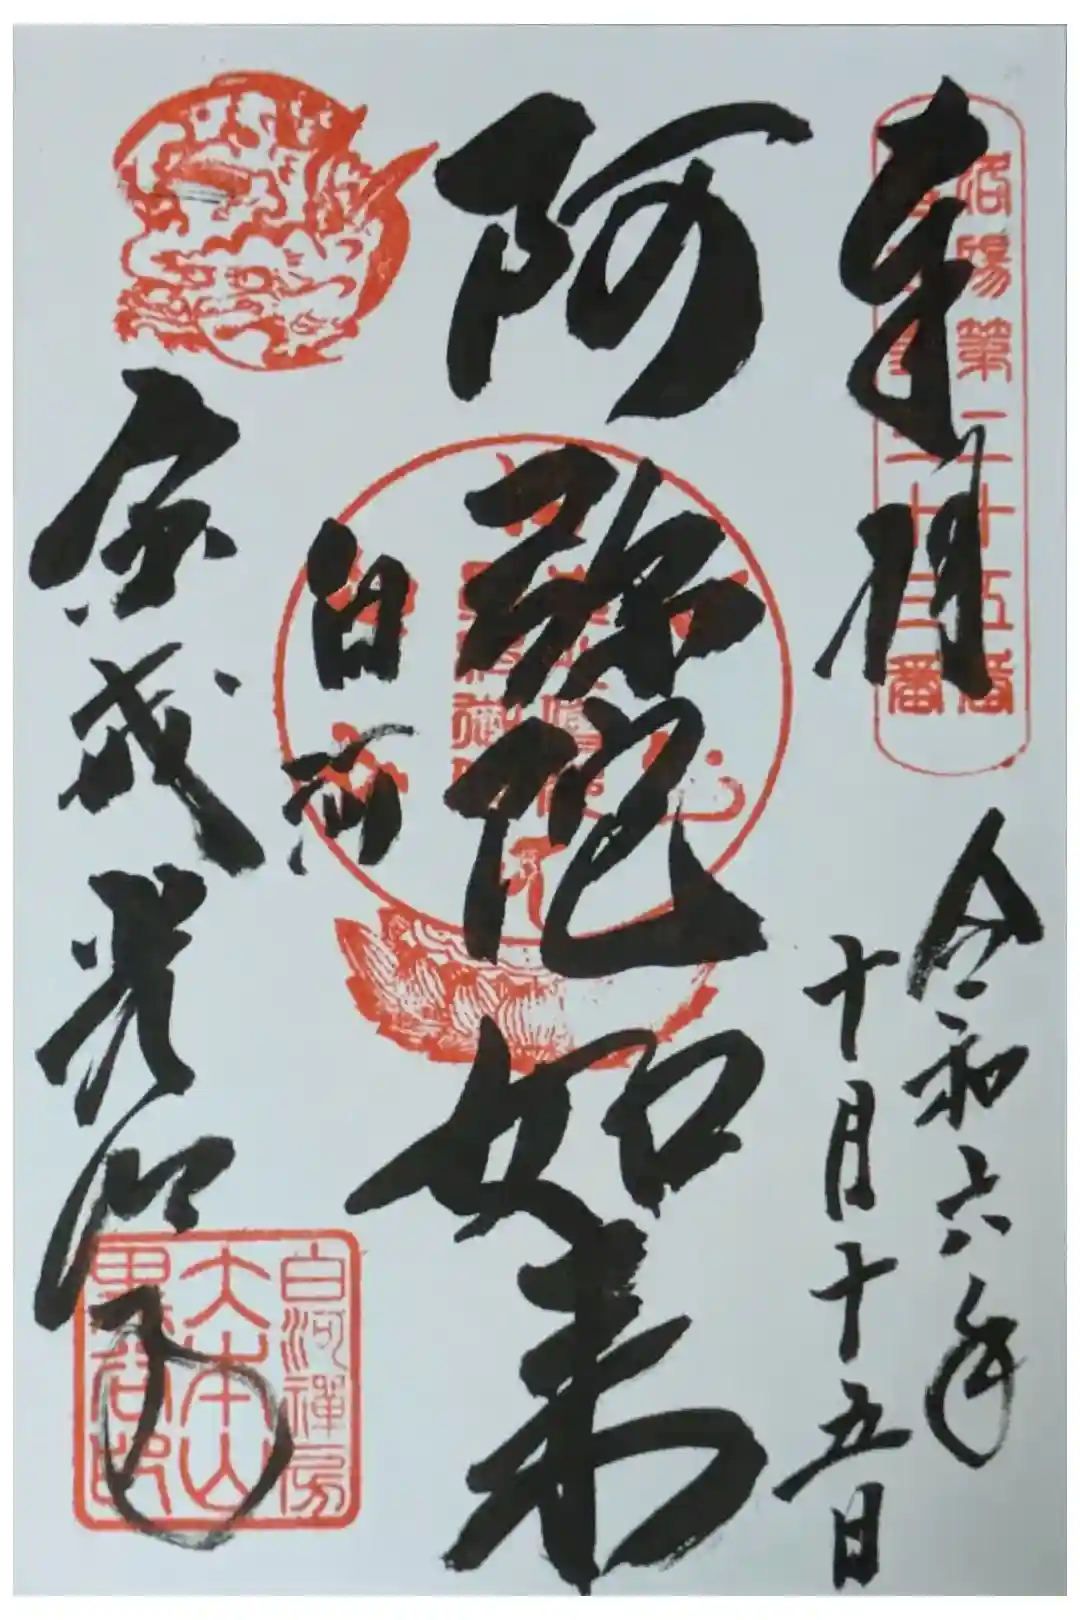 奉拝
洛陽第二十五番
令和六年
十月十五日
阿弥陀如来
白河
金戒光明寺
白河禪房
大本山
黒谷印